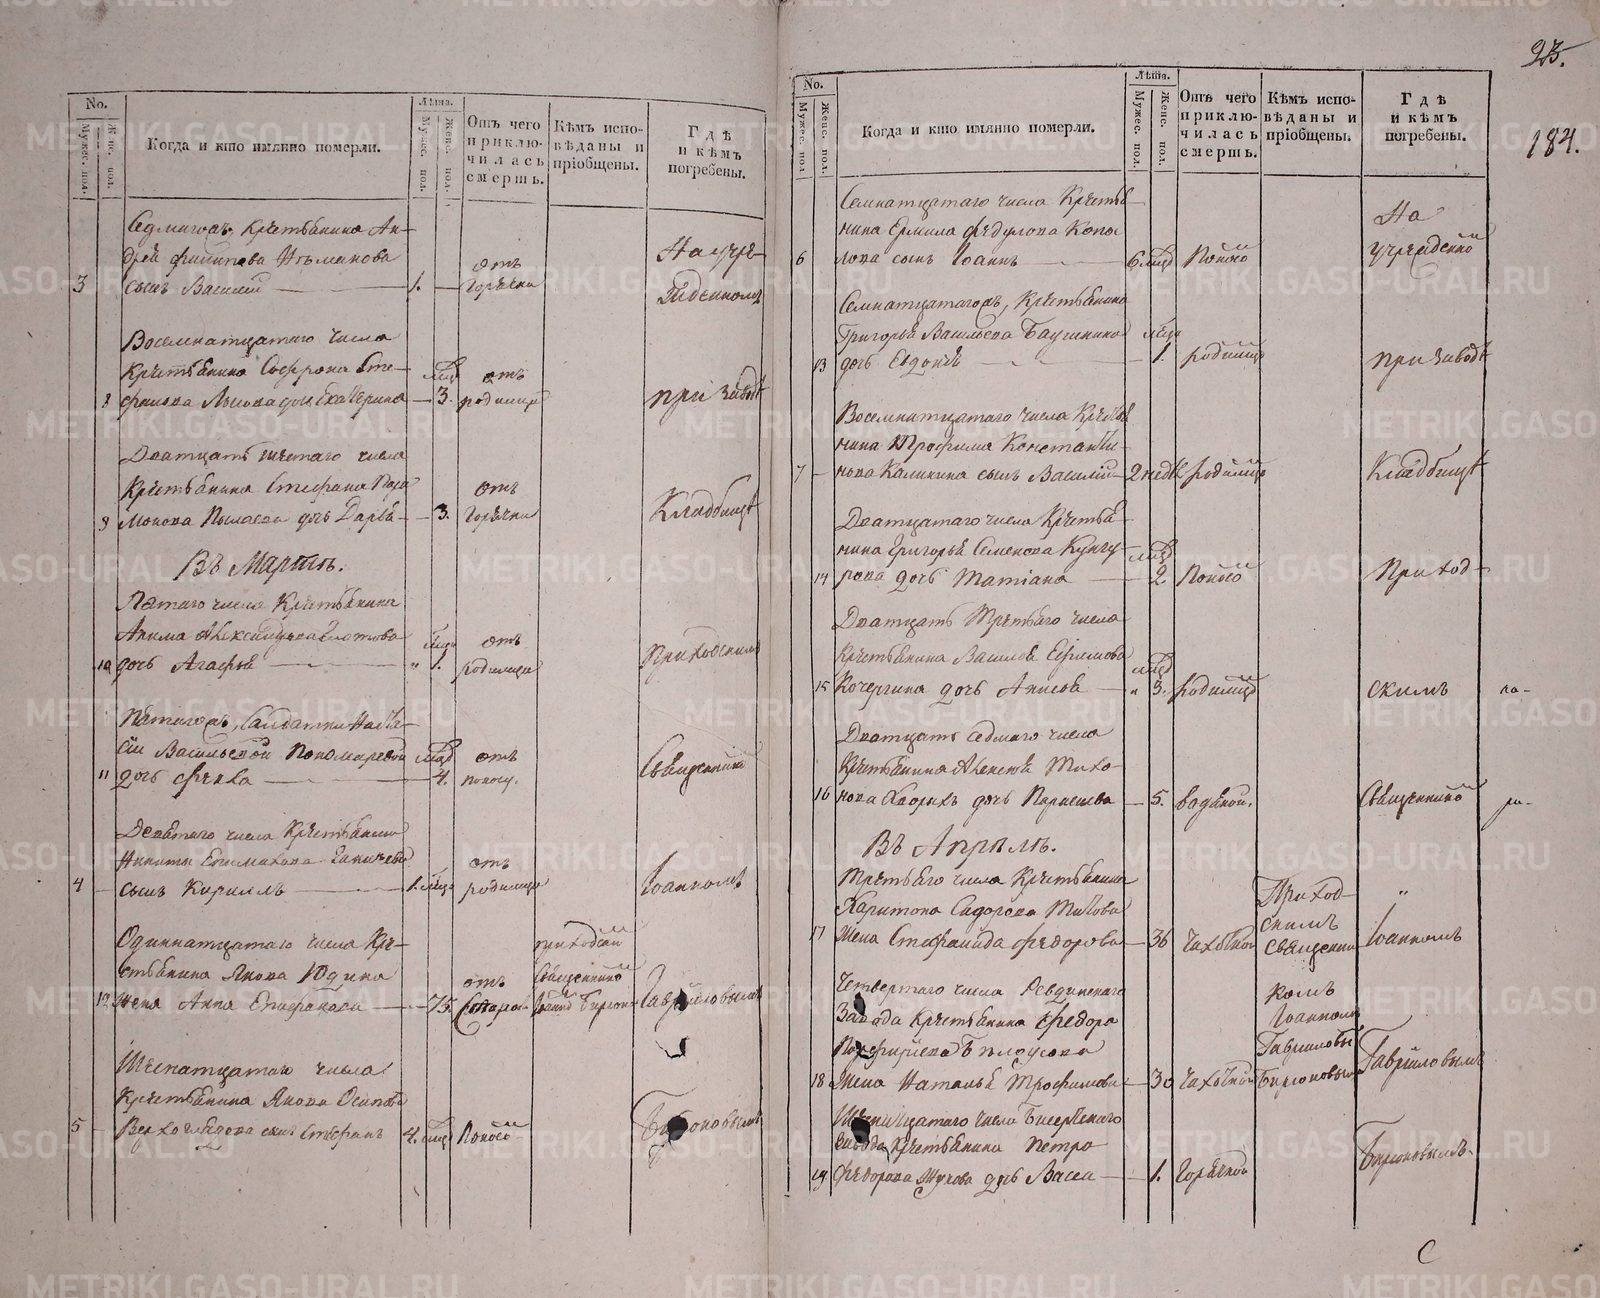 No.
Мужес. пол.
Женс. пол.
Когда и кто имянно померли.
Лѣта.
Мужес. пол.
Женс. пол.
Отъ чего приклю-чилась смерть.
Кѣмъ испо-вѣданы и пріобщены.
Гдѣ и кѣмъ погребены.
Седмагонадесять Крестьянина Ан-
дрея Филипова
3 сынъ Василий 1. отъ горячки
На учре-
жденномъ
Восемнатцатаго числа
Крестьянина Софрона Сте-
8 фанова дочь Екатерина 3. мѣсяц отъ родимца
при заводѣ
Дватцать шестаго числа
Крестьянина Стефана
9 дочь Дарья 3. отъ горячки
Кладбищѣ
Въ Мартѣ.
Пятаго числа Крестьянина
Акима Александрова
10 дочь Агафья " 1. отъ родимца
приходскимъ
Пятагонадесять, Салдатки Наста-
сіи Васильевой Пономаревой
11 дочь Фекла 4. отъ поносу.
Священникомъ
Девятаго числа Крестьянина
Никиты
4 сынъ Кириллъ 1. отъ родимца
Іоанномъ
Одиннатцатаго числа Кре-
стьянина Якова Юдина
12 жена Анна Епифанова 75. отъ старости
приходскимъ
Священникомъ
Гавриловымъ
Шестнатцатаго числа
Крестьянина Якова Осипова
5 сынъ Стефанъ 4. мѣсяц поносомъ
Бирюковымъ
23.
184.
No.
Мужес. пол.
Женс. пол.
Когда и кто имянно померли.
Лѣта.
Мужес. пол.
Женс. пол.
Отъ чего приклю-чилась смерть.
Кѣмъ испо-вѣданы и пріобщены.
Гдѣ и кѣмъ погребены.
Семнатцатаго числа Крестья
нина Ермила Федулова Копы
6 лова сынъ Іоаннъ 6 мѣсяц поносомъ
На
учрежденномъ
Семнатцатаго, Крестьянина
Григорья Васильева
13 дочь Евдокія 1. родимцомъ
при заводѣ
Восемнатцатаго числа Крестья
нина Трофима Константи-
7 нова Калинина сынъ Василий 2 недѣл родимцомъ
Кладбищѣ
Дватцатаго числа Крестья-
нина Григорья Семенова Кунгу-
14 рова дочь Татіана 2 поносомъ
Приход-
Дватцать третьяго числа
Крестьянина Василья Ефимова
15 Кочергина дочь Анисья " 3. родимцомъ
скимъ
Дватцать седмаго числа
Крестьянина Алексѣя Тихо-
16 нова дочь 5. водяной.
Священникомъ
Въ Апрѣлѣ.
Третьяго числа Крестьянина
Харитона Сидорова Титова
17 жена Стефанида Федорова 36 чахоткой
Приход-
скимъ
Священни
Іоанномъ
Четвертаго числа Ревдинскаго
Завода Крестьянина Федора
Порфирьева Бѣлоусова
18 жена Наталья Трофимова 30 чахоткой
комъ
Іоанномъ
Гавриловым
Бирюковымъ
Гавриловымъ
числа Бисертскаго
завода Крестьянина Петра
19 Федорова Жукова дочь Васса 1. горячкой
Бирюковымъ.
С
METRIKI.GASO-URAL.RU